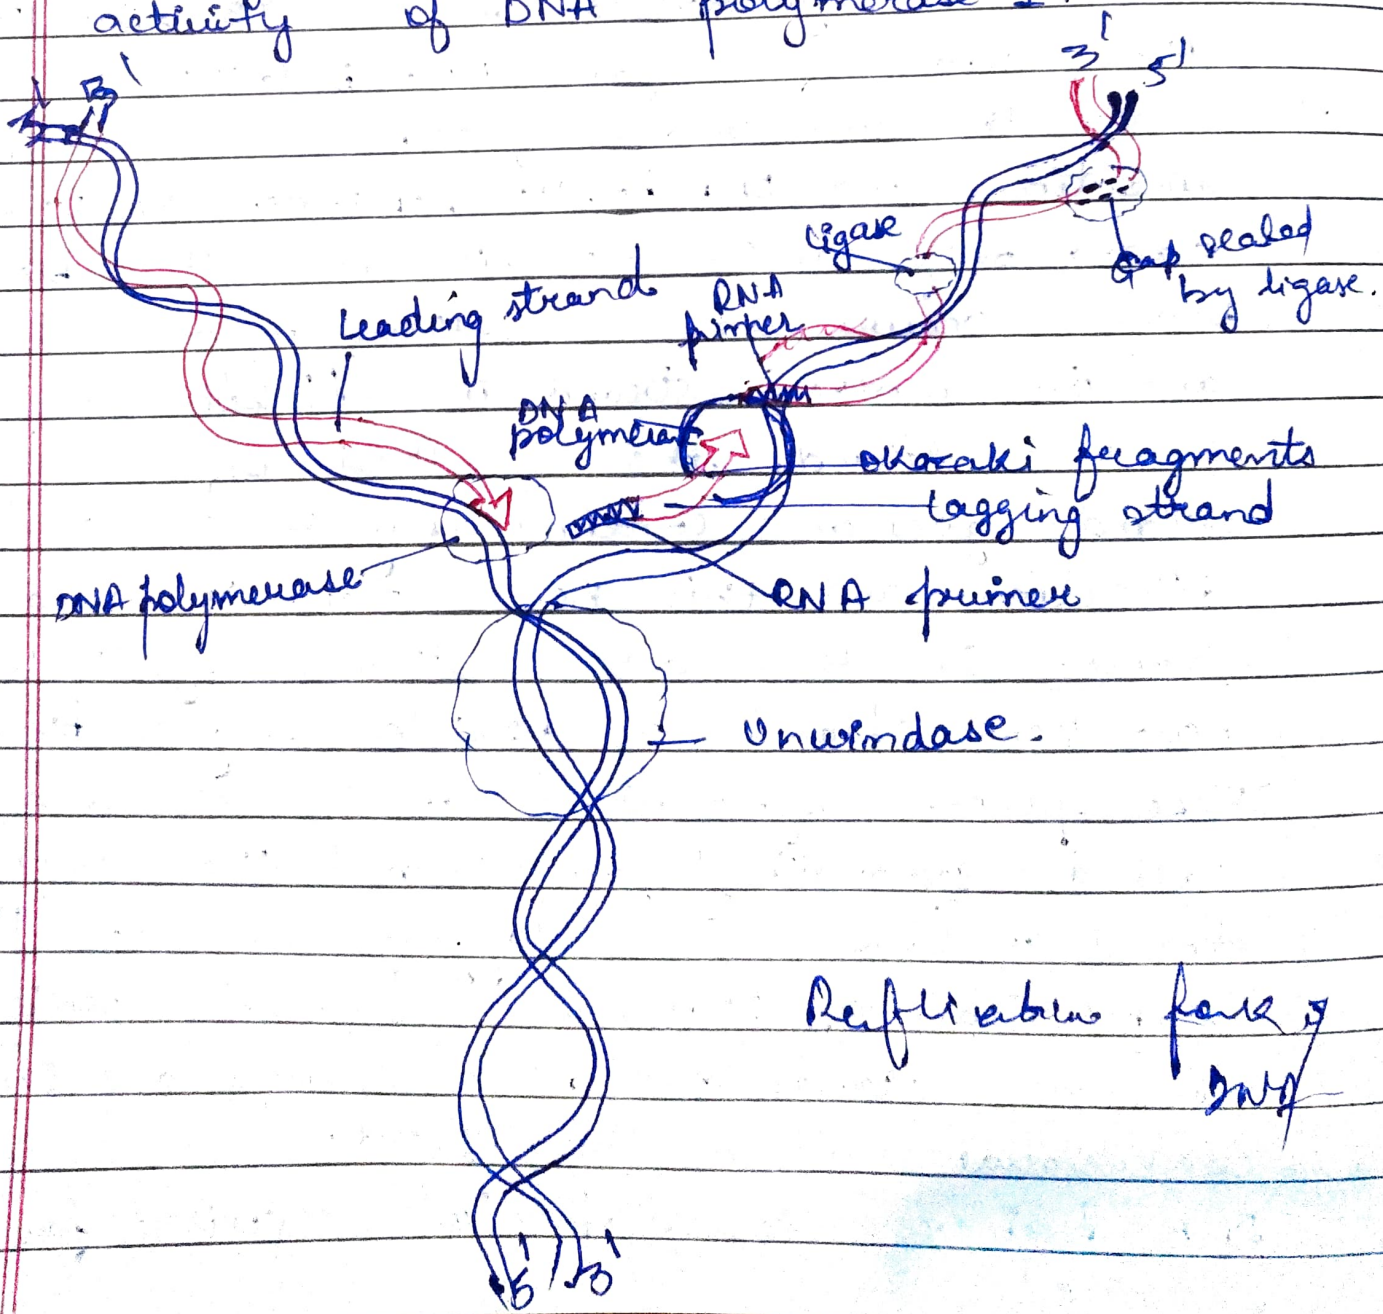 activity of DNA polymerase I.
3'
3' 5'
ligase
Gap sealed
by ligase.
Leading strand
RNA
primer
DNA
polymerase
okazaki fragments
lagging strand
DNA polymerase
RNA primer
Unwindase.
Replication fork
DNA
5' 3'